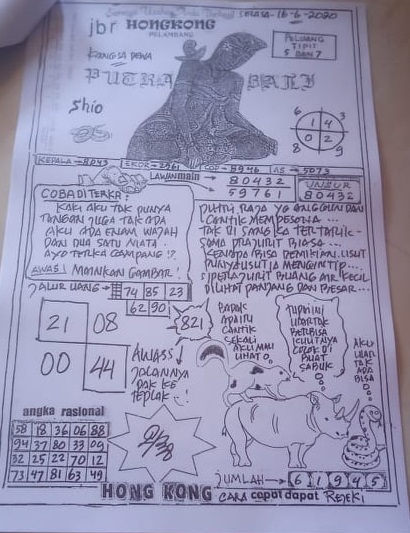 Semoga Untung Anda Berhasil SELASA-16-6-2020
jbr HONGKONG
PALEMBANG
PELUANG
TIPIT
5 DAN 7
PUTRA BALI
Shio
6 3
1 4
0 2
8 9
KEPALA→8043 EKOR→2961 8946 AS→5073
LAWAN main → 80432
59761
UNSUR
80432
COBA DITERKA:
KAKI AKU TAK PUNYA
TANGAN JUGA TAK ADA
AKU ADA ENAM WAJAH
DAN DUA SATU MATA
AYO TERKA GAMPANG !?
AWAS! MAINKAN GAMBAR!
PUTRI RAJA YG ANGGUN DAN
CANTIK MEMPESONA...
TAK DI SANGKA TERTARIK
SAMA PRAJURIT BIASA...
KENAPA BISA DEMIKIAN. USUT
PUNYA USUT IA MENGINTIP...
SIPERAJURIT BUANG AIR KECIL
DILIHAT PANJANG DAN BESAR...
JALUR UANG→ 74 85 23
62 90
21 08
00 44
821
BADAK
CANTIK
SEKALI
AKU MAU
LIHAT
BERBISA
KULITNYA
COCOK DI
BUAT
SABUK
AKU
TAK
ADA
BISA
AWASS
JALANNYA
angka rasional
58 18 36 06 88
94 37 80 33 09
32 25 22 70 12
73 47 81 63 49
JUMLAH→ 6 1 9 4 5
HONG KONG CARA cepat dapat REJEKI